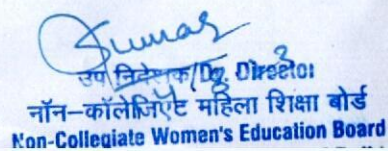 Kumar
उप निदेशक/Dy. Director
नॉन-कॉलेजिएट महिला शिक्षा बोर्ड
Non-Collegiate Women's Education Board